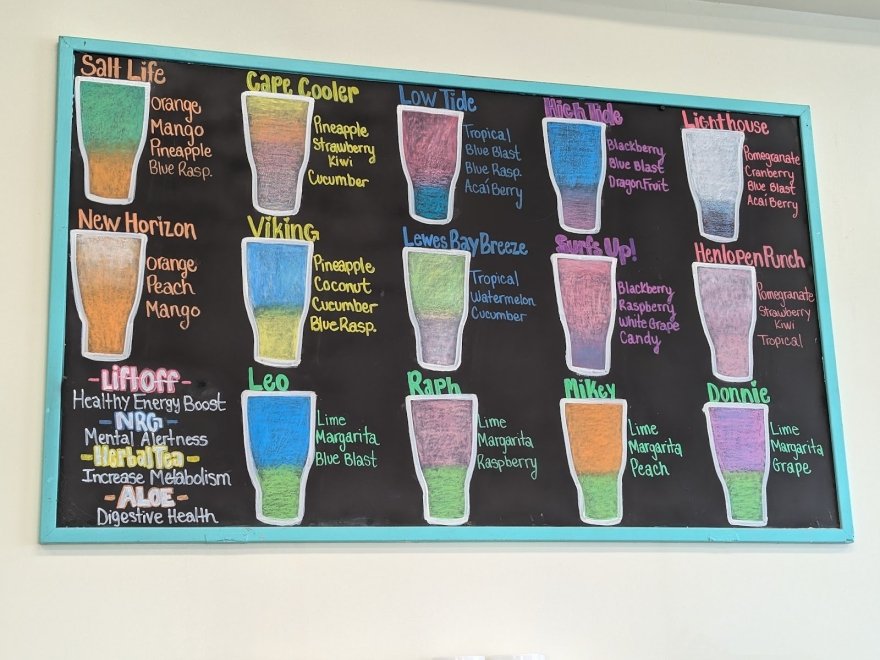 Salt Life
Orange
Mango
Pineapple
Blue Rasp.
Cape Cooler
Pineapple
Strawberry
Kiwi
Cucumber
Low Tide
Tropical
Blue Blast
Blue Rasp.
Acaí Berry
High Tide
Blackberry
Blue Blast
Dragon Fruit
Lighthouse
Pomegranate
Cranberry
Blue Blast
Acaí Berry
New Horizon
Orange
Peach
Mango
Viking
Pineapple
Coconut
Cucumber
Blue Rasp.
Lewes Bay Breeze
Tropical
Watermelon
Cucumber
Surfs Up!
Blackberry
Raspberry
White Grape
Candy
Henlopen Punch
Pomegranate
Strawberry
Kiwi
Tropical
-Liftoff-
Healthy Energy Boost
-NRG-
Mental Alertness
-Herbal Tea-
Increase Metabolism
-ALOE-
Digestive Health
Leo
Lime
Margarita
Blue Blast
Raph
Lime
Margarita
Raspberry
Mikey
Lime
Margarita
Peach
Donnie
Lime
Margarita
Grape